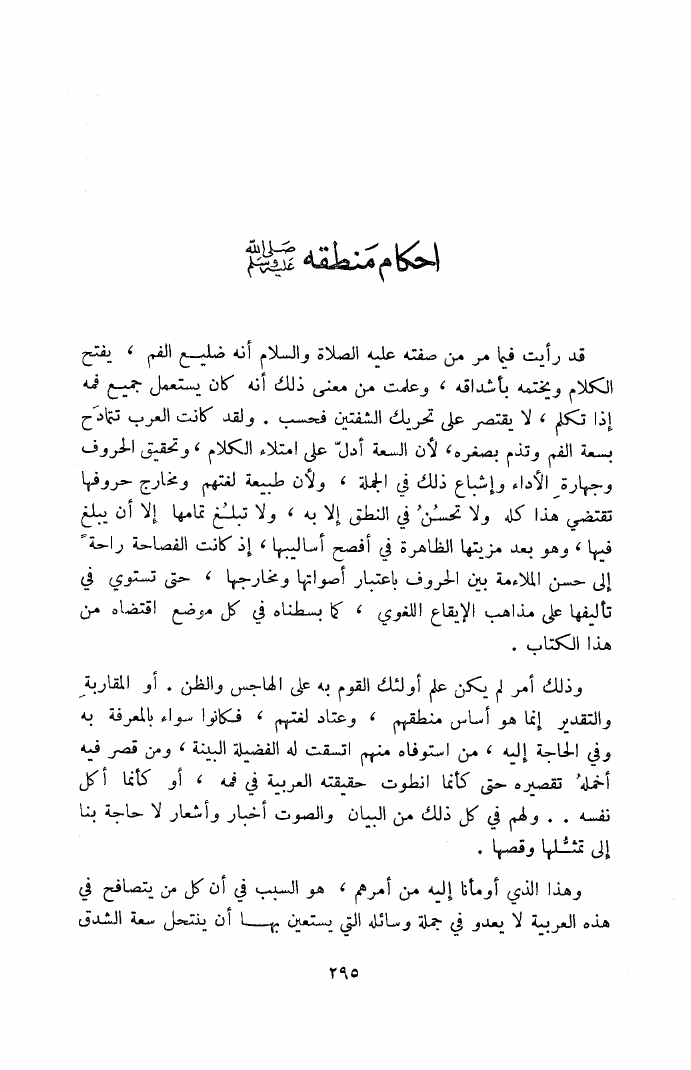 احكام مَنطقه ﷺ
قد رأيت فيما مر من صفته عليه الصلاة والسلام أنه ضليع الفم ، يفتح
الكلام ويختمه بأشداقه ، وعلمت من معنى ذلك أنه كان يستعمل جميع فمه
إذا تكلم ، لا يقتصر على تحريك الشفتين فحسب . ولقد كانت العرب تتمادَح
بسعة الفم وتذم بصغره، لأن السعة أدلّ على امتلاء الكلام ، وتحقيق الحروف
وجهارة ِ الأداء وإشباع ذلك في الجملة ، ولأن طبيعة لغتهم ومخارج حروفها
تقتضي هذا كله ولا تحسُنُ في النطق إلا به ، ولا تبلـُغ تمامها إلا أن يبلغ
فيها ، وهو بعد مزيتها الظاهرة في أفصح أساليبها ، إذ كانت الفصاحة راحة ً
إلى حسن الملاءمة بين الحروف باعتبار أصواتها ومخارجها ، حتى تستوي في
تأليفها على مذاهب الإيقاع اللغوي ، كما بسطناه في كل موضع اقتضاه من
هذا الكتاب .
وذلك أمر لم يكن علم أولئك القوم به على الهاجس والظن . أو المقاربة ِ
والتقدير إنما هو أساس منطقهم ، وعتاد لغتهم ، فكانوا سواء بالمعرفة به
وفي الحاجة إليه ، من استوفاه منهم اتسقت له الفضيلة البينة ، ومن قصر فيه
أخملهُ تقصيره حتى كأنما انطوت حقيقته العربية في فمه ، أو كأنما أكل
نفسه . . ولهم في كل ذلك من البيان والصوت أخبار وأشعار لا حاجة بنا
إلى تمثـُّلها وقصها .
وهذا الذي أومأنا إليه من أمرهم ، هو السبب في أن كل من يتصافح في
هذه العربية لا يعدو في جملة وسائله التي يستعين بهـا أن ينتحل سعة الشدق
٢٩٥